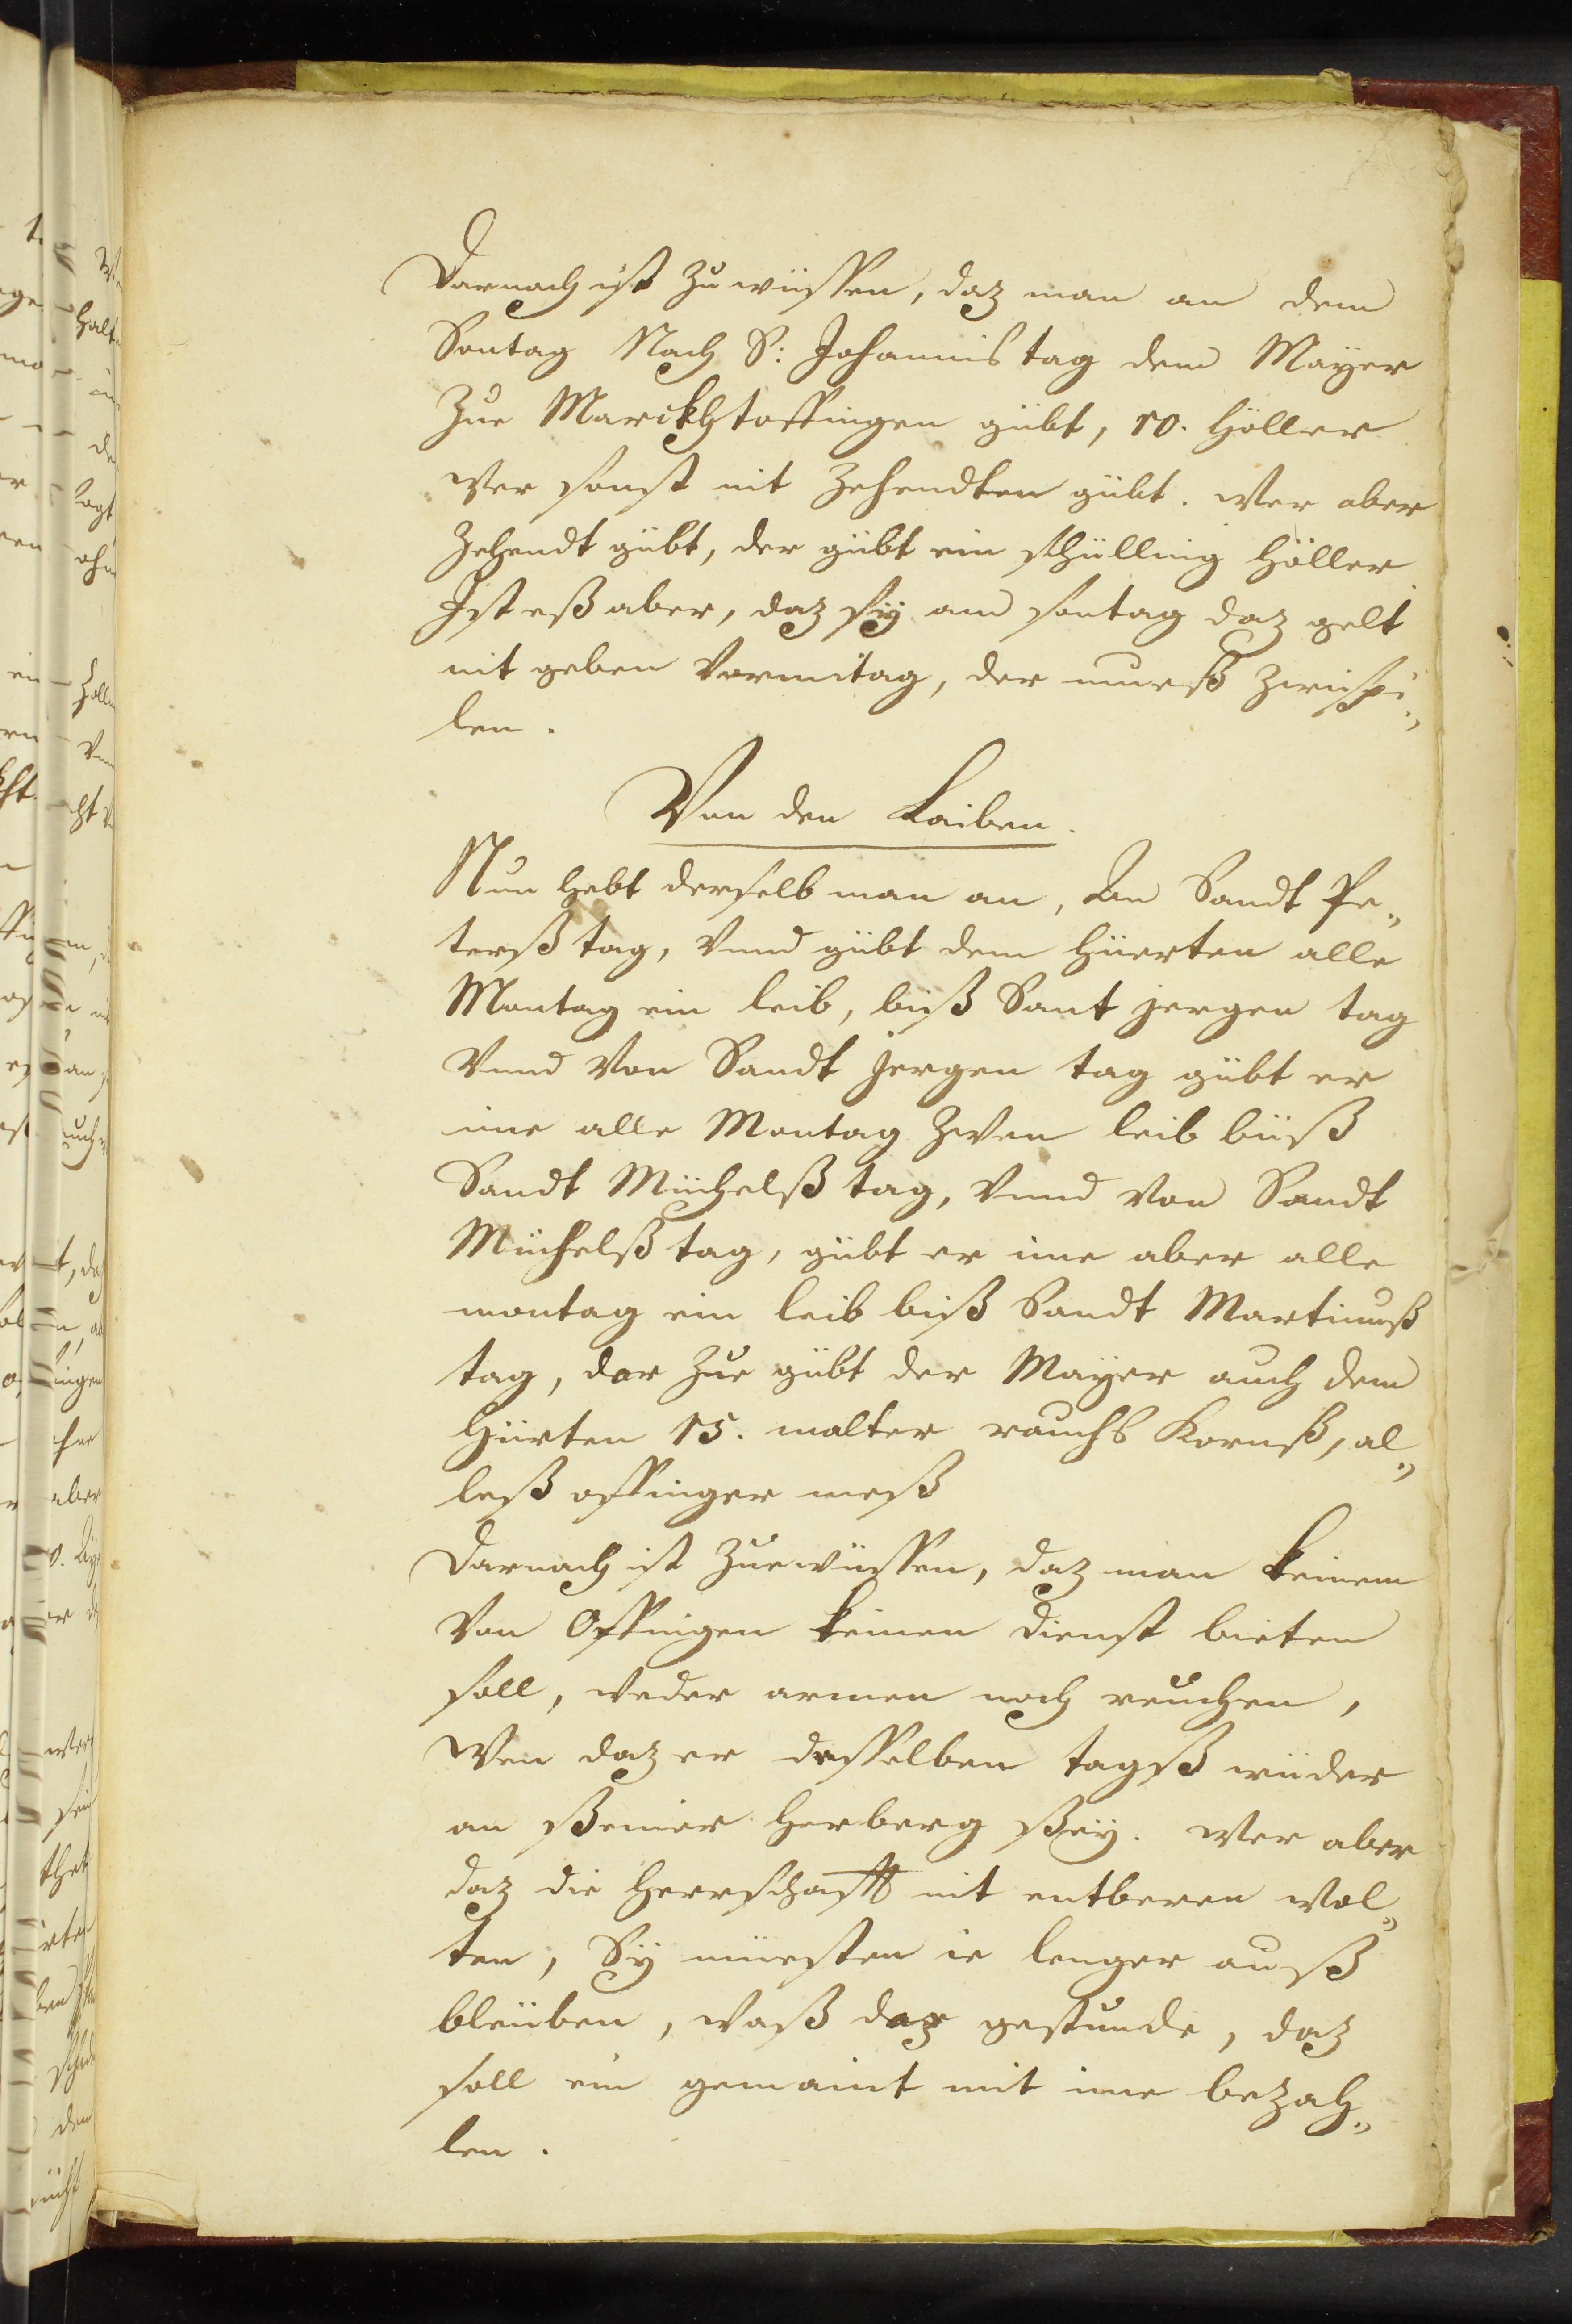 Darnach ist zu wüssen, daz man an dem
Sontag Nach S: Johannis tag dem Mayer
Zue Marckhtoffingen gübt, 10. Höller
wer sonst nit Zehendten gübt. wer aber
Zehendt gübt, der gübt ein schülling Höller
Ist eß aber, daz sÿ am sontag daz gelt
nit geben Vormitag, der mueß zwispi„
len.
Von den Laiben.
Nun hebt derselb man an, An Sandt Pe„
terß tag, Vnnd gübt dem Hüerten alle
Montag ein leib, biß Sant jergen tag
Vnnd Von Sandt Jergen tag gübt er
ime alle Montag zwen leib büß
Sandt Müchelß tag, Vnnd Von Sandt
Müchelß tag, gübt er ime aber alle
montag ein leib biß Sandt Martinuß
tag, dar Zue gübt der Mayer auch dem
Hürten 15. malter rauchs Kornß, al„
leß offinger meß
Darnach ist Zue wüssen, daz man keinem
Von Offingen keinen dienst bieten
soll, weder armen noch reuchen,
Wen daz er desselben tagß wüder
an ßeiner Herberg ßeÿ. Wer aber
daz die Herrschafft nit entberen wol„
ten, Sÿ müesten ie lenger auß
bleüben, waß daz gestunde, daz
soll ein gemaint mit ime bezah„
len.